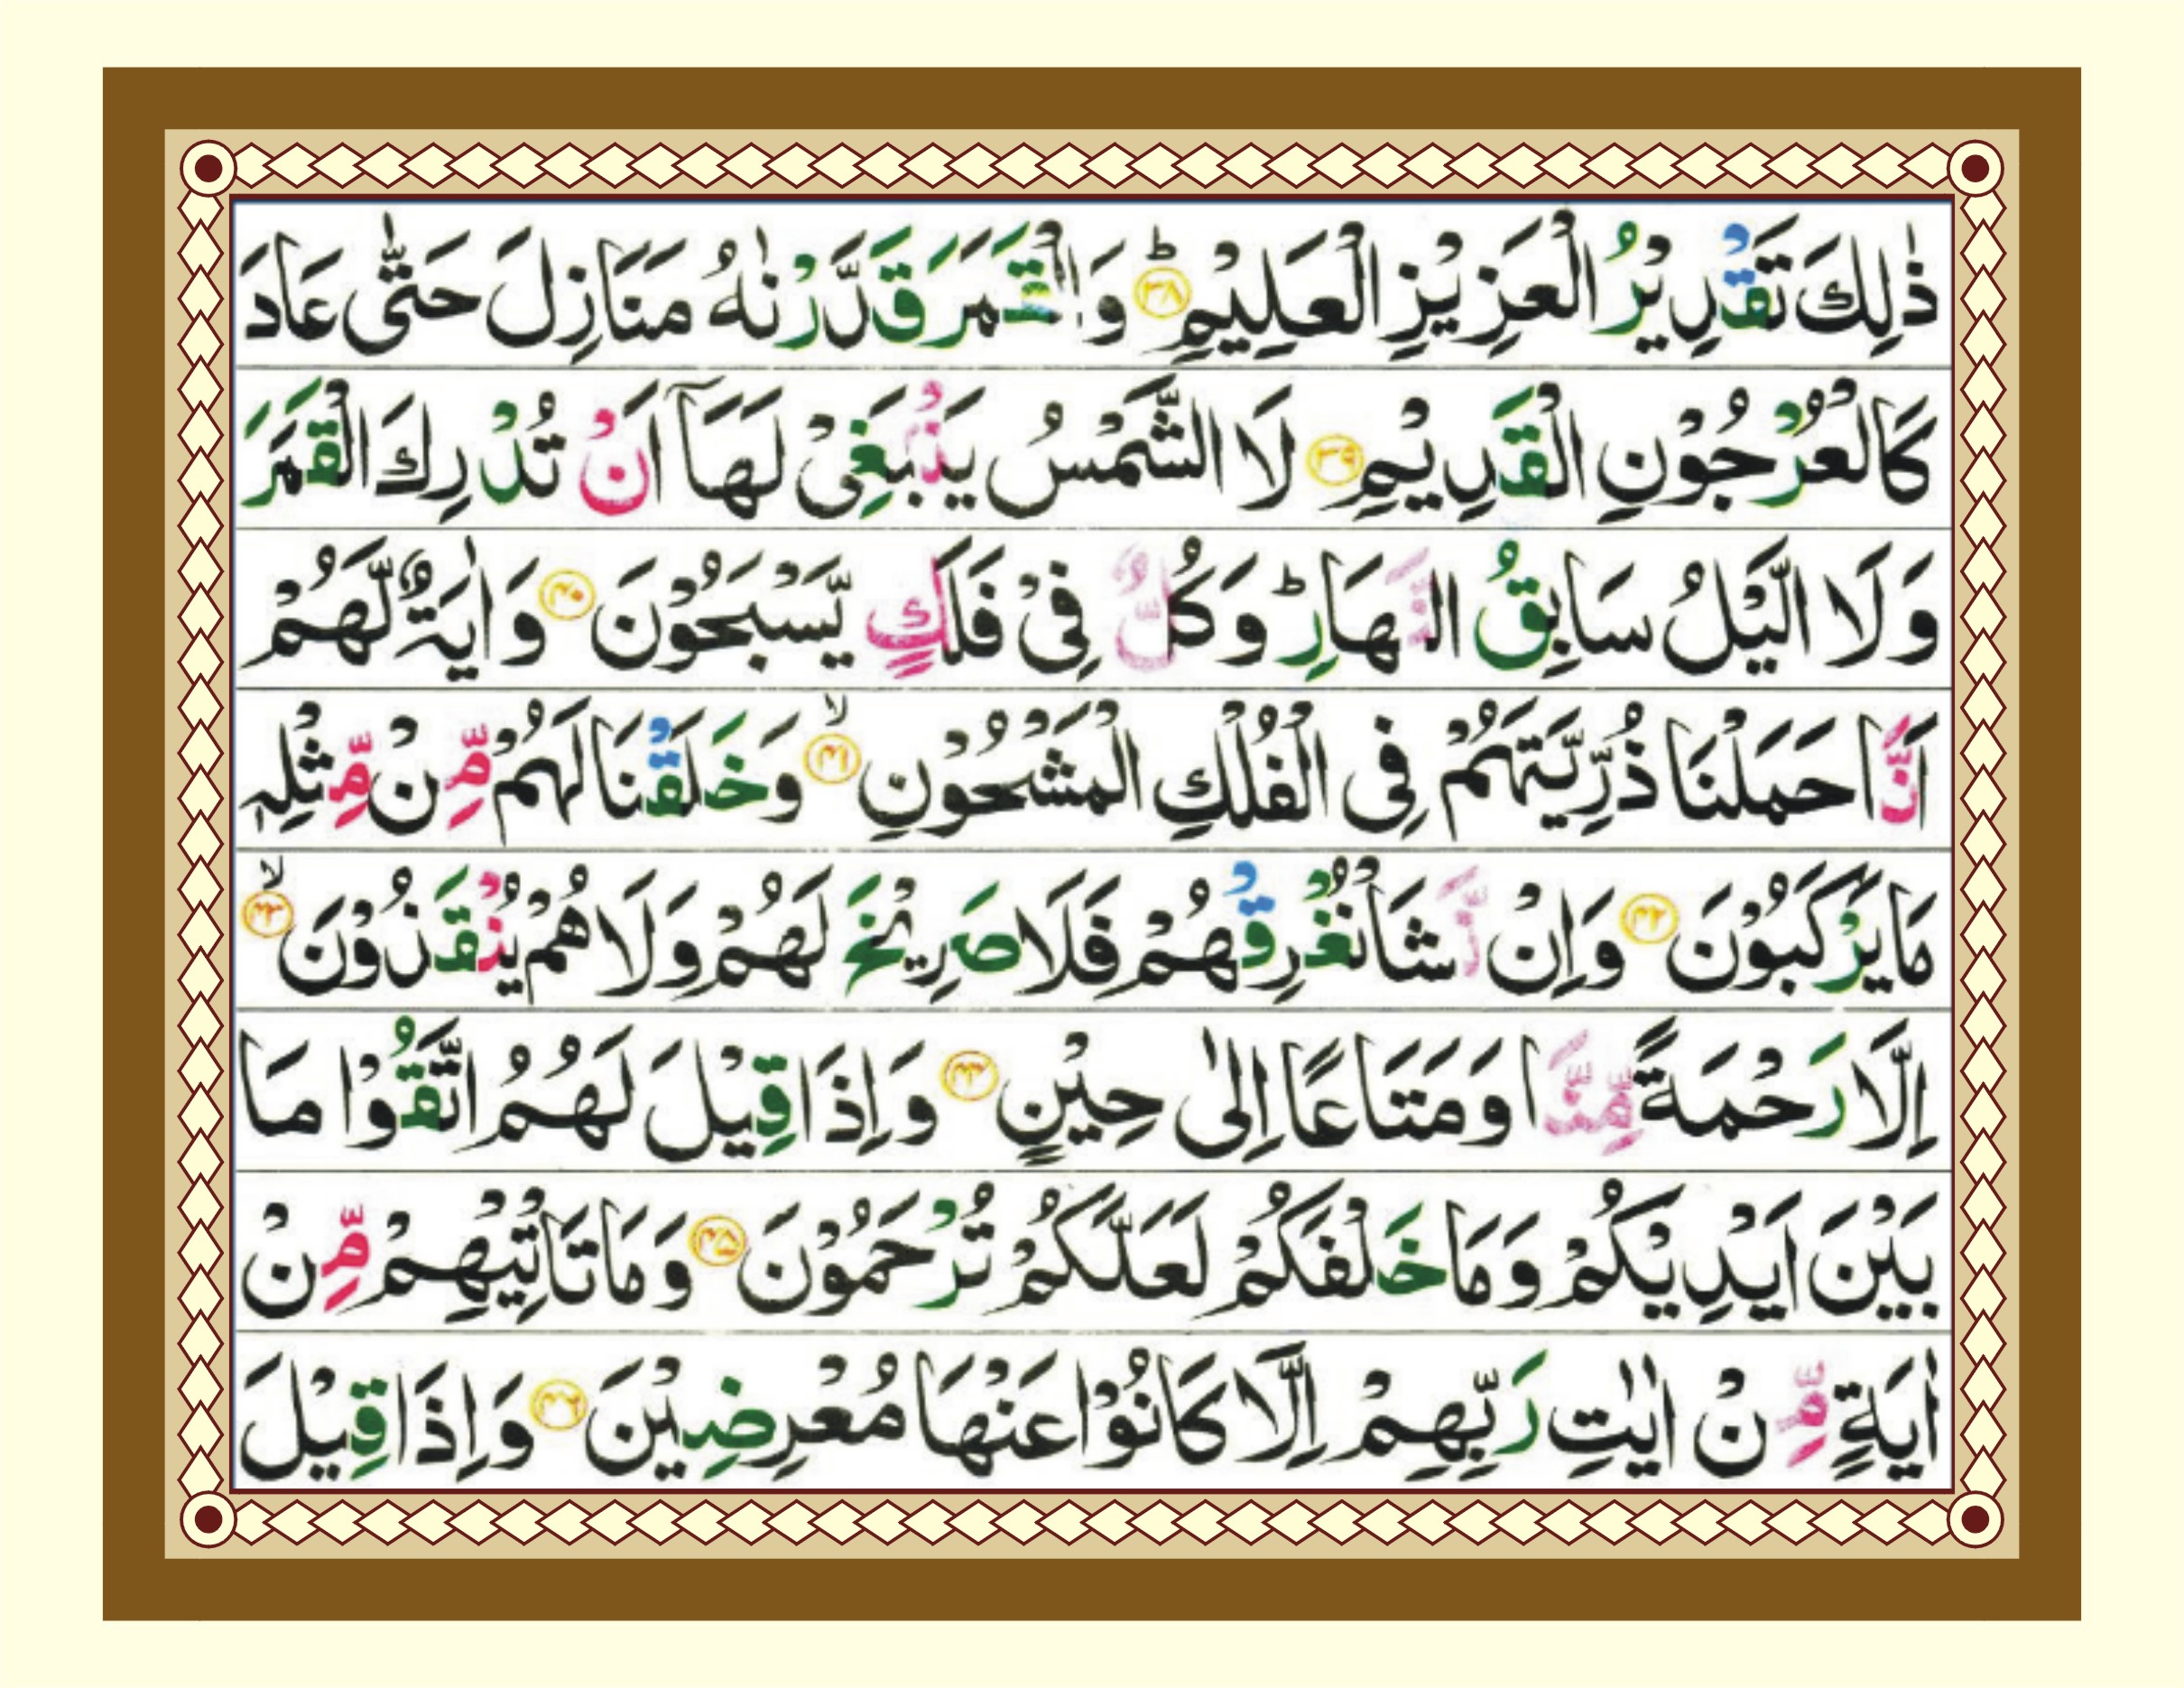 ذٰلِكَ تَقْدِیْرُ الْعَزِیْزِ الْعَلِیْمِؕ۝۳۸ وَالْقَمَرَ قَدَّرْنٰهُ مَنَازِلَ حَتّٰی عَادَ
كَالْعُرْجُوْنِ الْقَدِیْمِ۝۳۹ لَا الشَّمْسُ یَنْۢبَغِیْ لَهَاۤ اَنْ تُدْرِكَ الْقَمَرَ
وَلَا الَّیْلُ سَابِقُ النَّهَارِؕ وَكُلٌّ فِیْ فَلَكٍ یَّسْبَحُوْنَ۝۴۰ وَاٰیَةٌ لَّهُمْ
اَنَّا حَمَلْنَا ذُرِّیَّتَهُمْ فِی الْفُلْكِ الْمَشْحُوْنِۙ۝۴۱ وَخَلَقْنَا لَهُمْ مِّنْ مِّثْلِهٖ
مَا یَرْكَبُوْنَ۝۴۲ وَاِنْ نَّشَاْ نُغْرِقْهُمْ فَلَا صَرِیْخَ لَهُمْ وَلَا هُمْ یُنْقَذُوْنَۙ۝۴۳
اِلَّا رَحْمَةً مِّنَّا وَمَتَاعًا اِلٰی حِیْنٍ۝۴۴ وَاِذَا قِیْلَ لَهُمُ اتَّقُوْا مَا
بَیْنَ اَیْدِیْكُمْ وَمَا خَلْفَكُمْ لَعَلَّكُمْ تُرْحَمُوْنَ۝۴۵ وَمَا تَاْتِیْهِمْ مِّنْ
اٰیَةٍ مِّنْ اٰیٰتِ رَبِّهِمْ اِلَّا كَانُوْا عَنْهَا مُعْرِضِیْنَ۝۴۶ وَاِذَا قِیْلَ